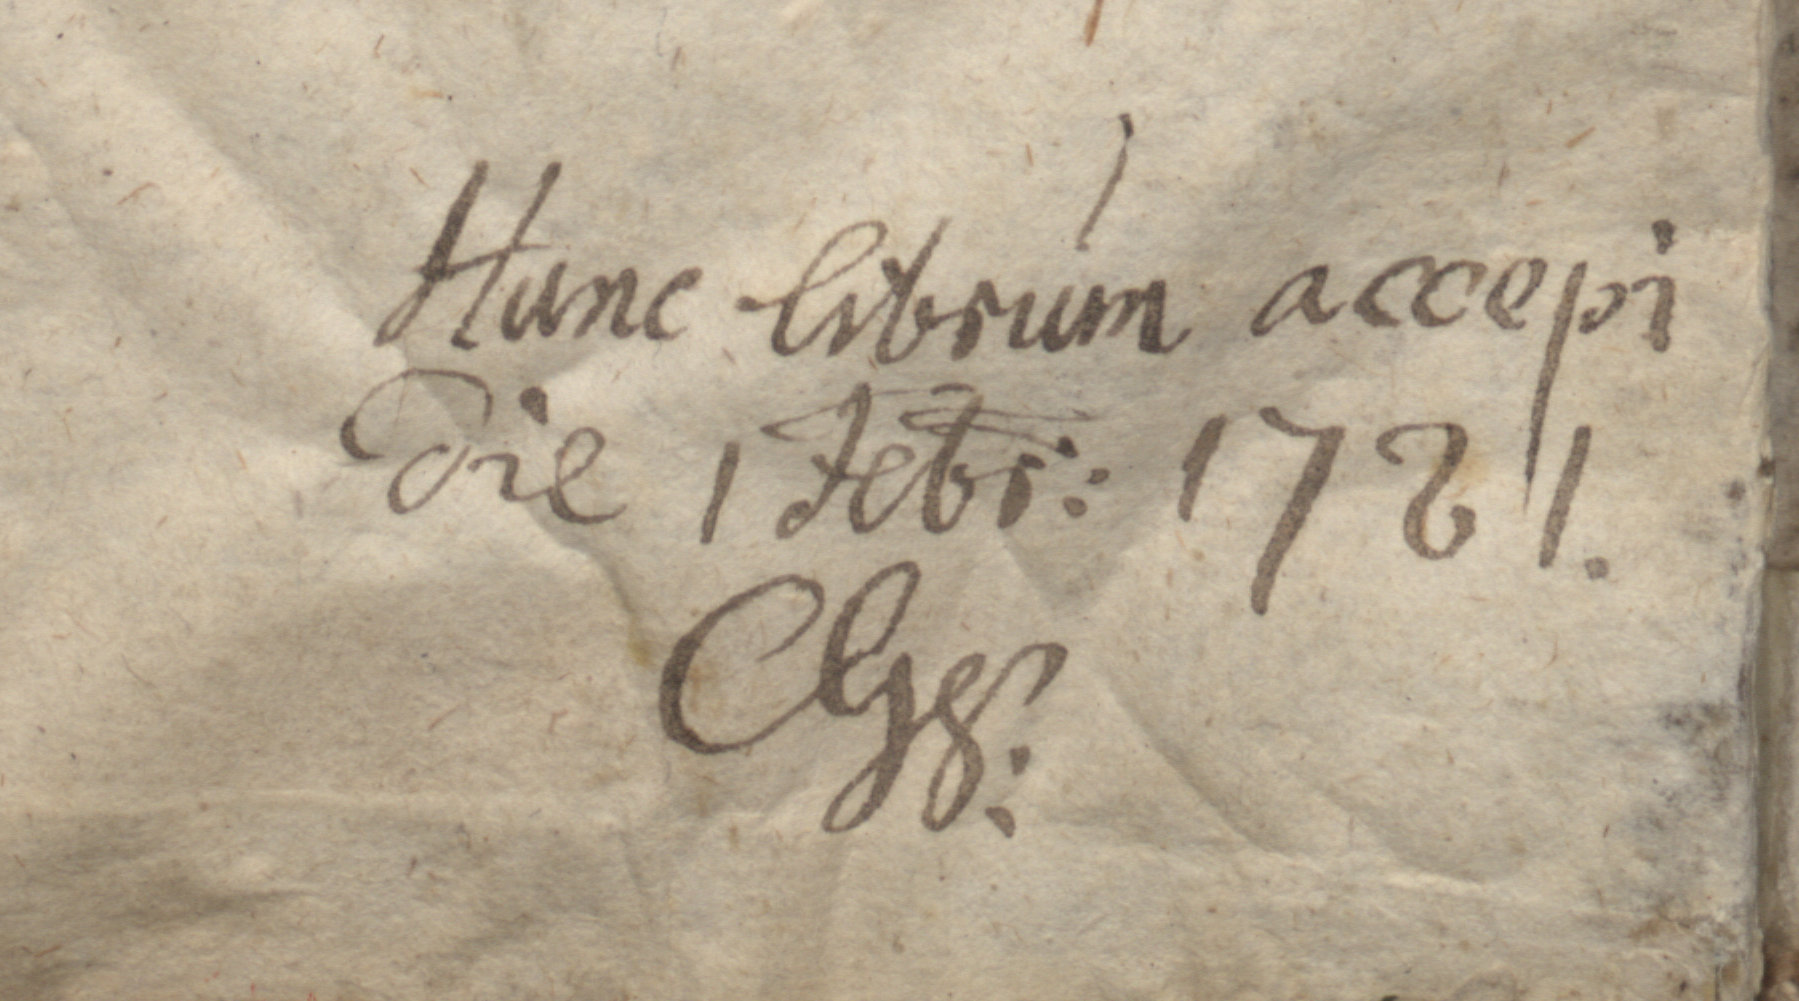 Hunc librum accepi
die 1 Febr: 1781.